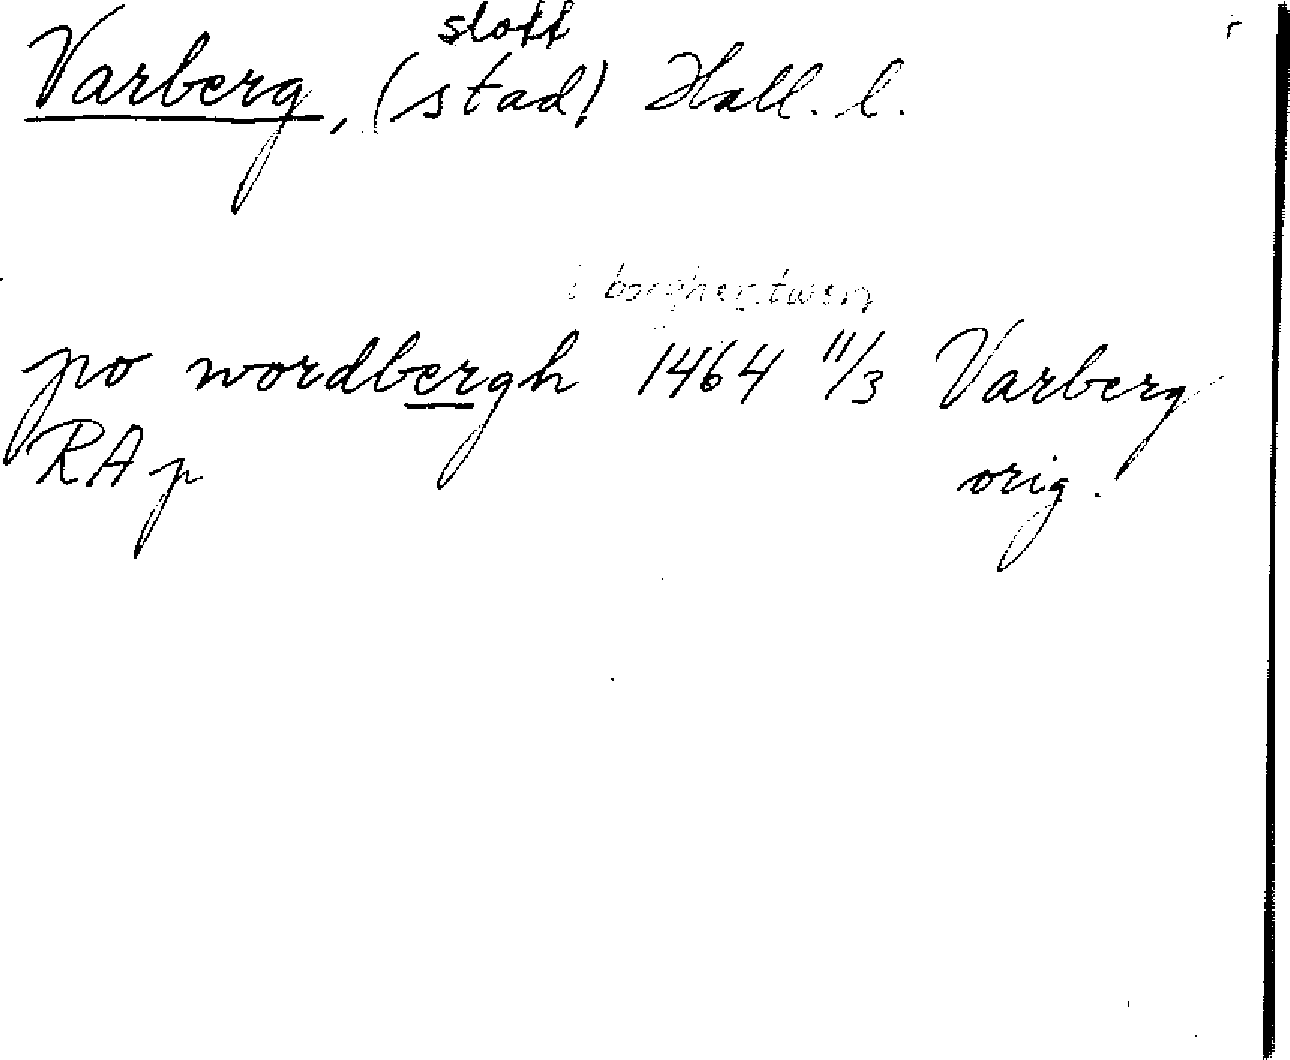 slott
Varberg, (stad) Hall. l.
i borgherstwen
po wordbergh 1464 11/3 Varberg
RA p orig.